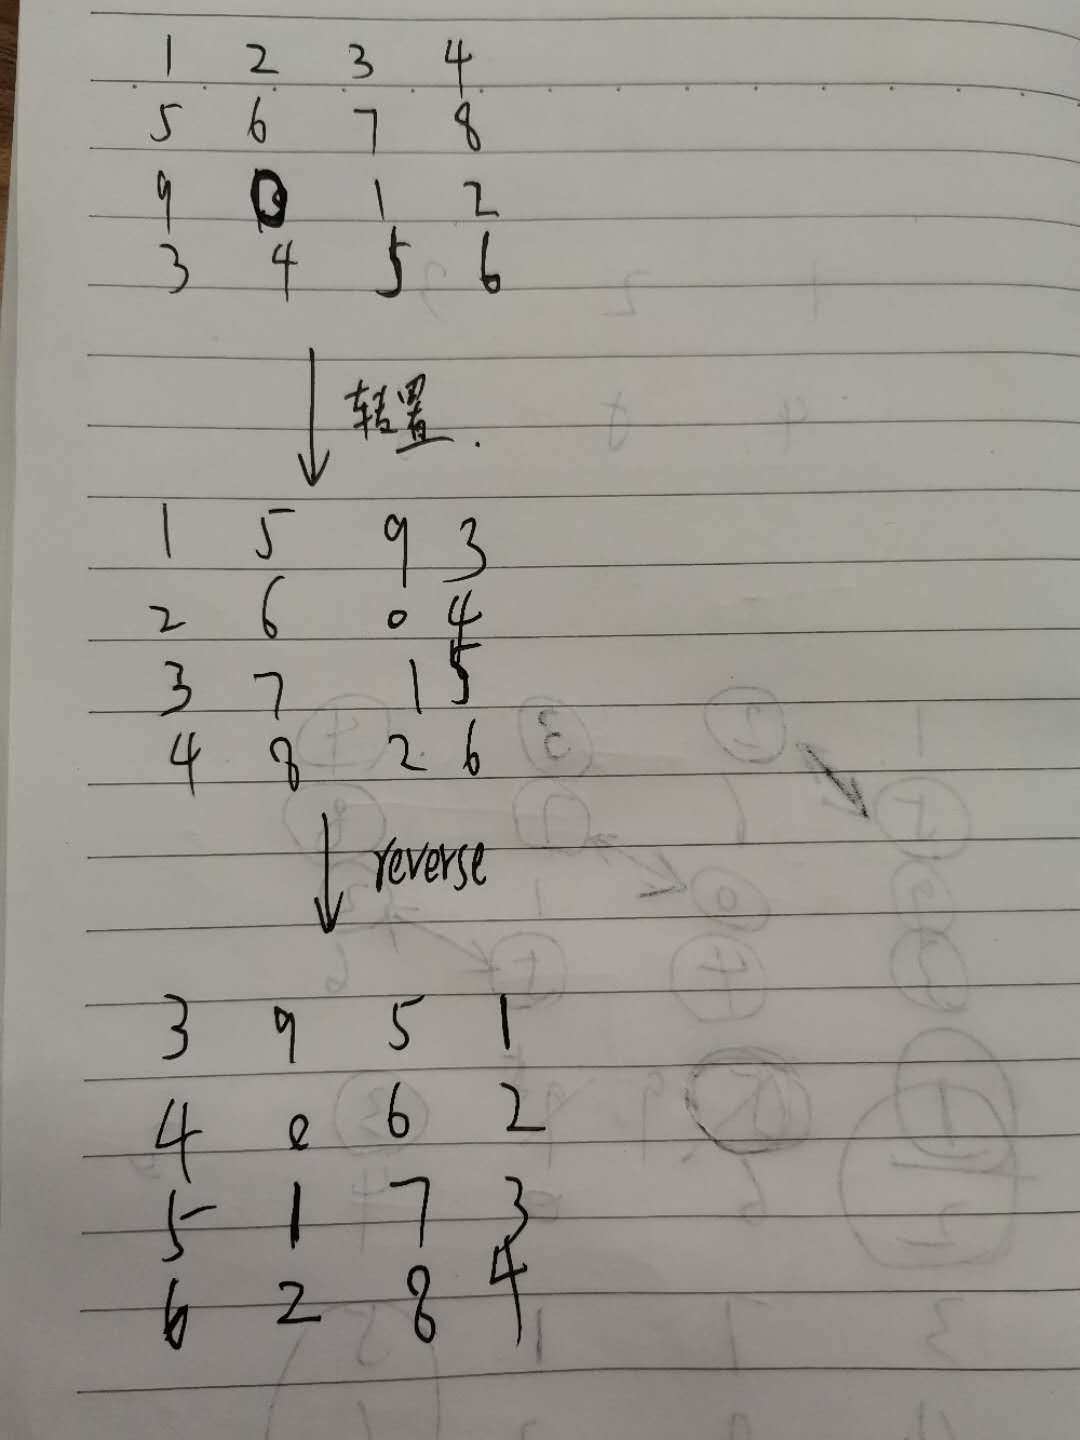 1 2 3 4
5 6 7 8
9 0 1 2
3 4 5 6
转置.
1 5 9 3
2 6 0 4
3 7 1 5
4 8 2 6
reverse
3 9 5 1
4 0 6 2
5 1 7 3
6 2 8 4